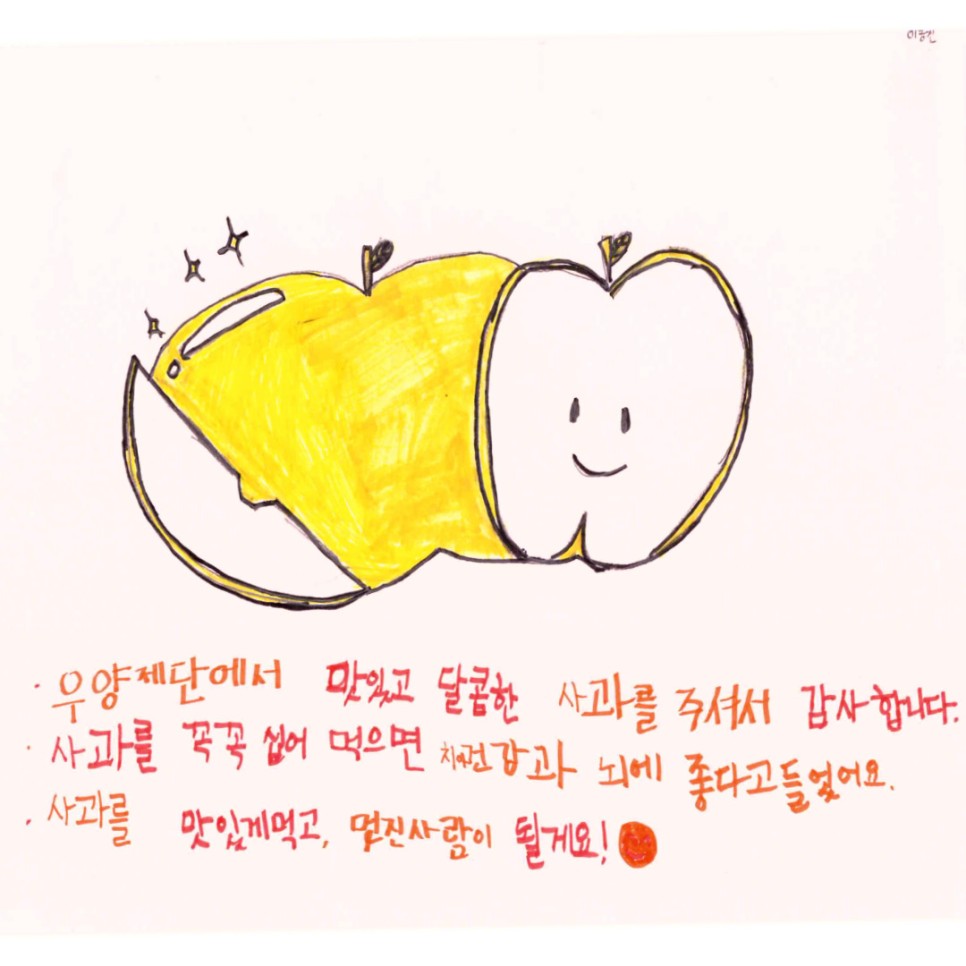 · 우양제단에서 맛있고 달콤한 사과를 주셔서 감사합니다.
· 사과를 꼭꼭 씹어 먹으면 치아건강과 뇌에 좋다고들었어요.
· 사과를 맛있게먹고, 멋진사람이 될게요!